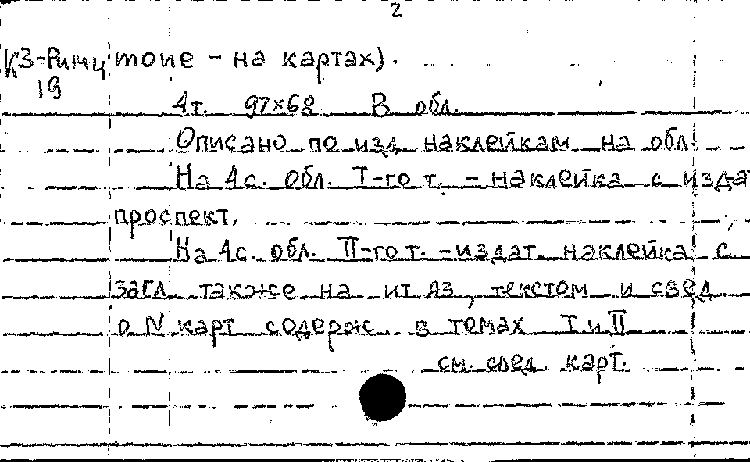 2
К3-Римц тоие - на картах).
19
4т. 97×68 В обл.
Описано по изд. наклейкам на обл.
На 4с. обл. I-го т. - наклейка с издат
проспект.
На 4с. обл. II-го т. - издат. наклейка с
загл. также на ит. яз., текстом и свед.
о N карт содерж. в томах I и II
см. след. карт.